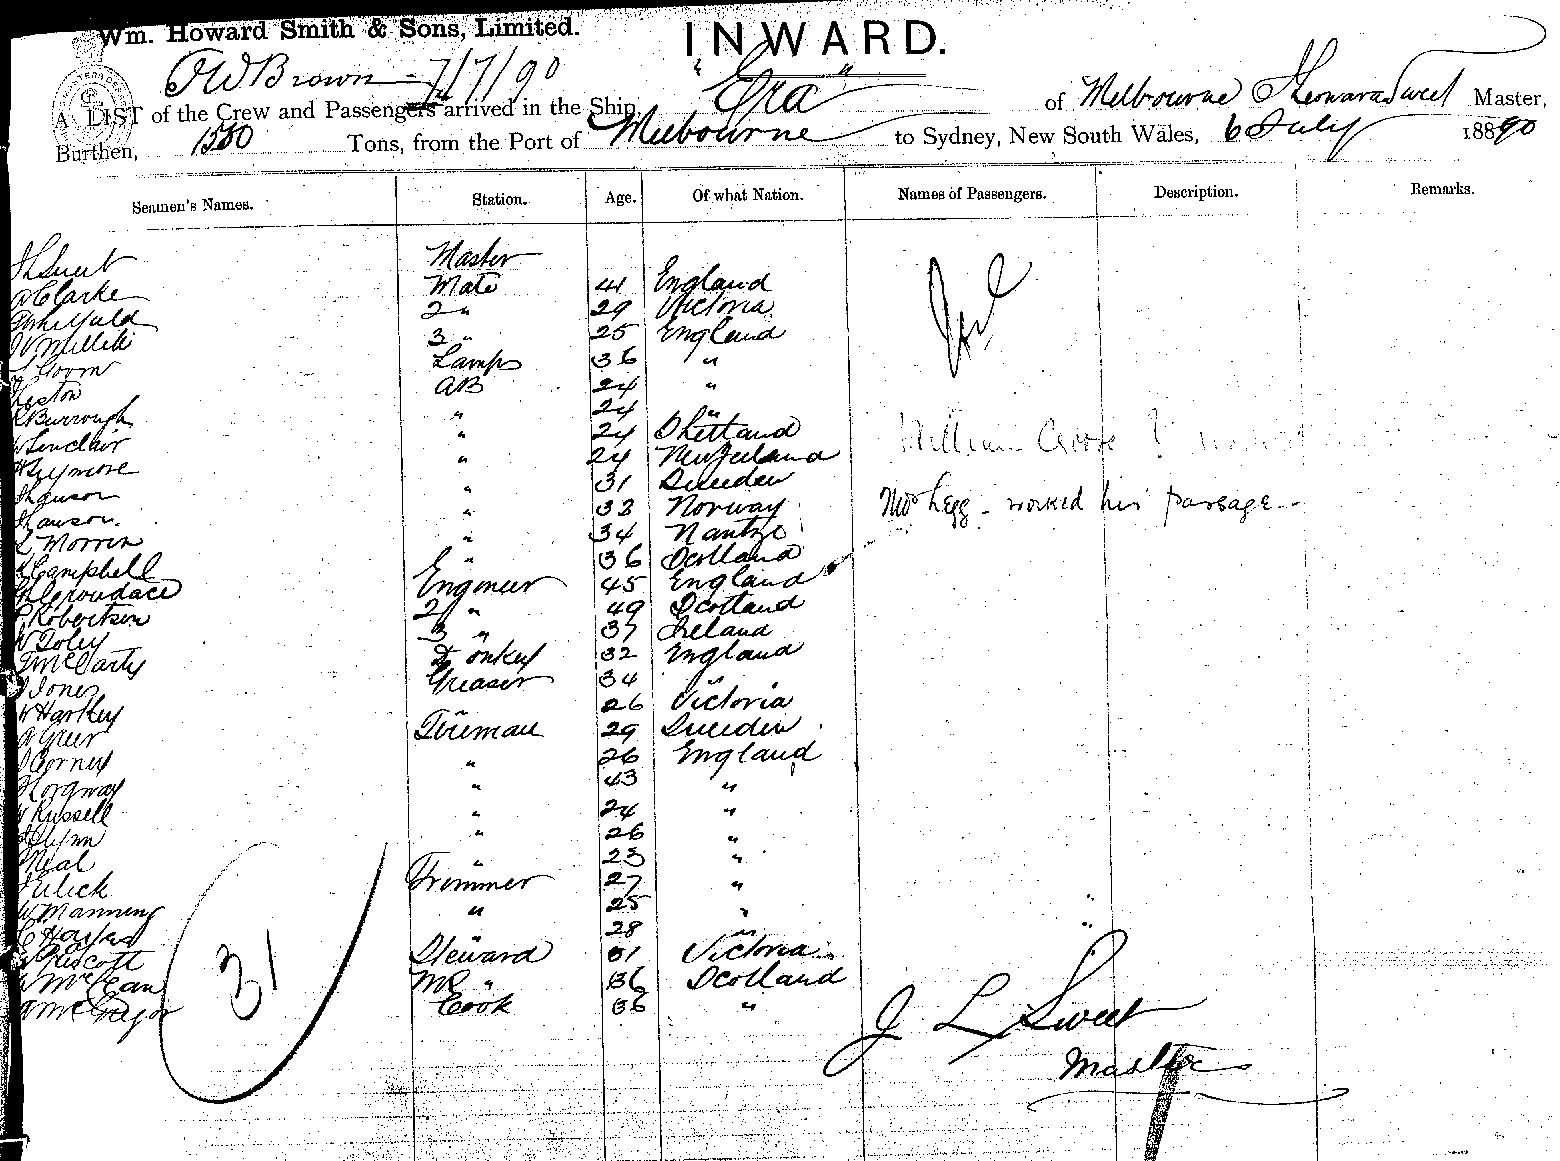 Wm. Howard Smith & Sons, Limited.
INWARD.
FWBrown 7/7/90
A LIST of the Crew and Passengers arrived in the Ship "Era" of Melbourne J Leonard Sweet Master,
Burthen, 1550 Tons, from the Port of Melbourne to Sydney, New South Wales, 6 July 1890
Seamen's Names. Station. Age. Of what Nation. Names of Passengers. Description. Remarks.
J L Sweet Master
A Clarke Mate 41 England
2 " 29 Victoria
3 " 25 England
Lamps 36 "
AB 24 "
R Burrough " 24 "
W Sinclair " 24 Shetland
H Seymore " 24 New Zealand
" 31 Sweden
" 33 Norway
L Morrin " 34
Campbell " 36 Scotland
Croudace Engineer 45 England
P Robertson 2 " 49 Scotland
W Foley 3 " 37 Ireland
McCarty Donkey 32 England
J Jones Greaser 34 "
W Harkey " 26 Victoria
A Greer Fireman 29 Sweden
Corney " 26 England
" 43 "
W Russell " 24 "
Flynn " 26 "
Neal " 23 "
Trimmer 27 "
W Manning " 25 "
" 28 "
Prescott Steward 31 Victoria
W McLean " 36 Scotland
McGregor Cook 36 "
31
William
Legg - worked his passage
J L Sweet
Master